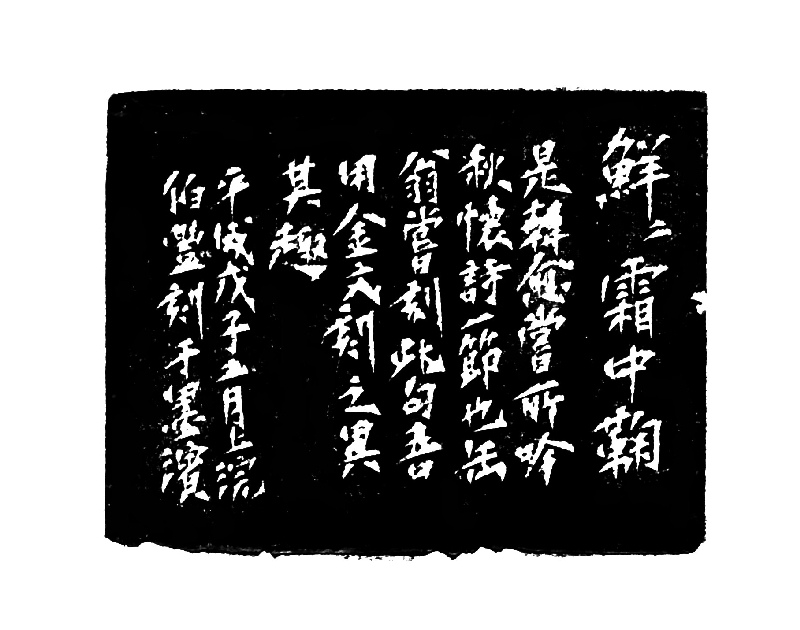 鮮〻霜中鞠
是韓愈嘗所吟
秋懷詩一節也缶
翁嘗刻此句吾
用金文刻之異
其趣
平成戊子五月上浣
伯豐刻于墨濱